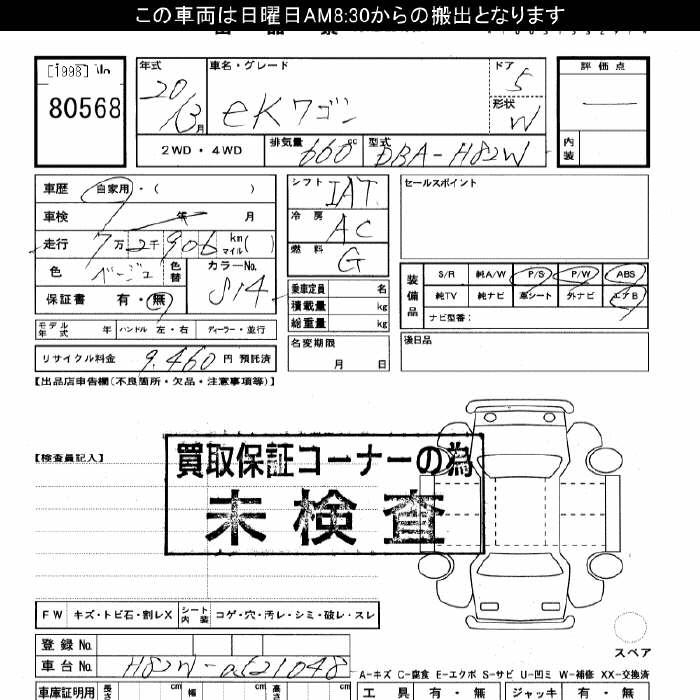 この車両は日曜日AM8:30からの搬出となります
[1998]
80568
年式 車名・グレード ドア 評価点
20 5
13月 eKワゴン 形状 W
2WD・4WD 排気量 660cc 型式 DBA-H82W 内装
車歴 自家用・( )
車検 年 月
走行 7万2千906 km マイル( )
色 ベージュ 色替 カラーNo. S14
保証書 有・無
モデル年式 年 ハンドル 左・右 ディーラー・並行
リサイクル料金 9,460円 預託済
シフト IAT
冷房 AC
燃料 G
乗車定員 名
積載量 kg
総重量 kg
名変期限
月 日
セールスポイント
装備品 S/R 純A/W P/S P/W ABS
純TV 純ナビ 革シート 外ナビ エアB
ナビ型番:
後日品
【出品店申告欄(不良箇所・欠品・注意事項等)】
【検査員記入】
買取保証コーナーの為
未検査
FW キズ・トビ石・割レX シート内装 コゲ・穴・汚レ・シミ・破レ・スレ
スペア
登録No.
車台No. H82W-
A-キズ C-腐食 E-エクボ S-サビ U-凹ミ W-補修 XX-交換済
車庫証明用 長さ cm 幅 cm 高さ cm 工具 有・無 ジャッキ 有・無